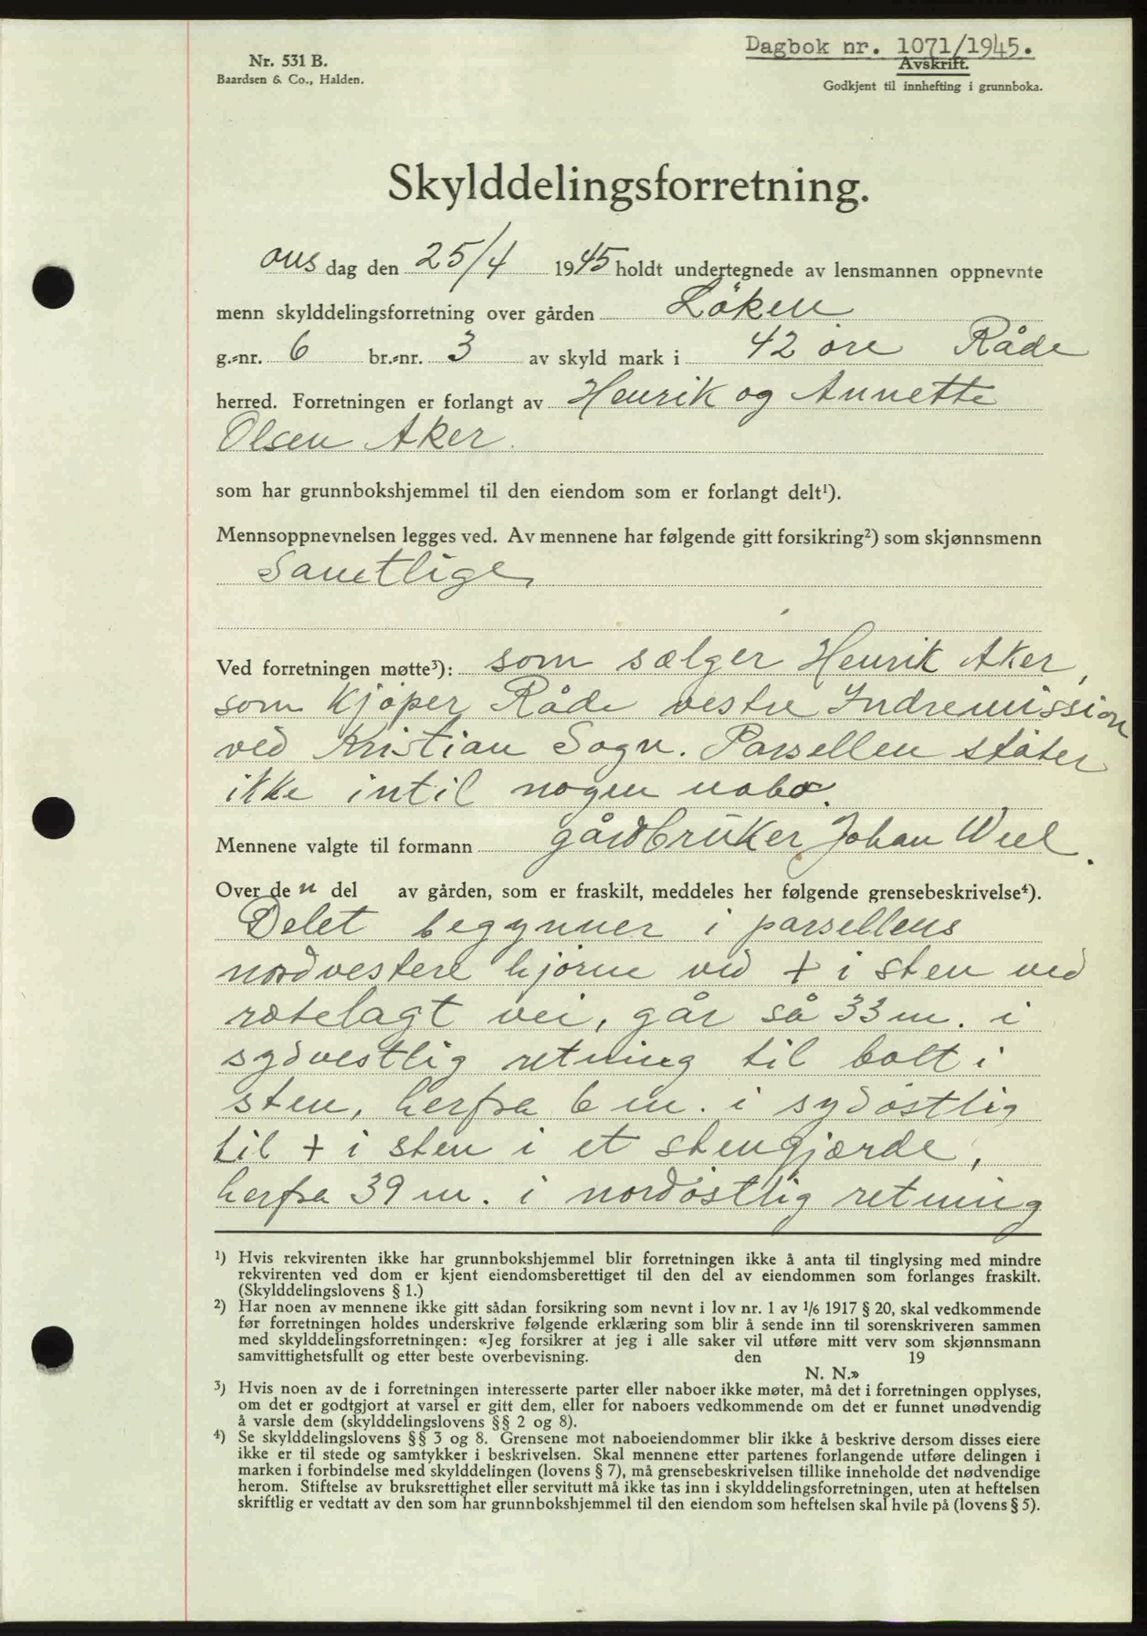 Dagbok nr. 1071/1945.
Nr. 531 B.
Avskrift.
Baardsen & Co., Halden.
Godkjent til innhefting i grunnboka.
Skylddelingsforretning.
ons dag den 25/4 1945 holdt undertegnede av lensmannen oppnevnte
menn skylddelingsforretning over gården Löken
g.-nr. 6 br.-nr. 3 av skyld mark i 42 öre Råde
herred. Forretningen er forlangt av Henrik og Annette
Olsen Aker.
som har grunnbokshjemmel til den eiendom som er forlangt delt¹).
Mennsoppnevnelsen legges ved. Av mennene har følgende gitt forsikring²) som skjønnsmenn
Samtlige
Ved forretningen møtte³): som sælger Henrik Aker,
som kjöper Råde vestre Indremission
ved Kristian Sogn. Parsellen stöter
ikke intil nogen nabo.
Mennene valgte til formann gårdbruker Johan Weel.
Over de n del av gården, som er fraskilt, meddeles her følgende grensebeskrivelse⁴).
Delet begynner i parsellens
nordvestere hjörne ved + i sten ved
rotelagt vei, går så 33 m. i
sydvestlig retning til bolt i
sten, herfra 6 m. i sydöstlig
til + i sten i et stengjærde,
herfra 39 m. i nordöstlig retning
¹) Hvis rekvirenten ikke har grunnbokshjemmel blir forretningen ikke å anta til tinglysing med mindre
rekvirenten ved dom er kjent eiendomsberettiget til den del av eiendommen som forlanges fraskilt.
(Skylddelingslovens § 1.)
²) Har noen av mennene ikke gitt sådan forsikring som nevnt i lov nr. 1 av 1/6 1917 § 20, skal vedkommende
før forretningen holdes underskrive følgende erklæring som blir å sende inn til sorenskriveren sammen
med skylddelingsforretningen: «Jeg forsikrer at jeg i alle saker vil utføre mitt verv som skjønnsmann
samvittighetsfullt og etter beste overbevisning. den 19
N. N.»
³) Hvis noen av de i forretningen interesserte parter eller naboer ikke møter, må det i forretningen opplyses,
om det er godtgjort at varsel er gitt dem, eller for naboers vedkommende om det er funnet unødvendig
å varsle dem (skylddelingslovens §§ 2 og 8).
⁴) Se skylddelingslovens §§ 3 og 8. Grensene mot naboeiendommer blir ikke å beskrive dersom disses eiere
ikke er til stede og samtykker i beskrivelsen. Skal mennene etter partenes forlangende utføre delingen i
marken i forbindelse med skylddelingen (lovens § 7), må grensebeskrivelsen tillike inneholde det nødvendige
herom. Stiftelse av bruksrettighet eller servitutt må ikke tas inn i skylddelingsforretningen, uten at heftelsen
skriftlig er vedtatt av den som har grunnbokshjemmel til den eiendom som heftelsen skal hvile på (lovens § 5).